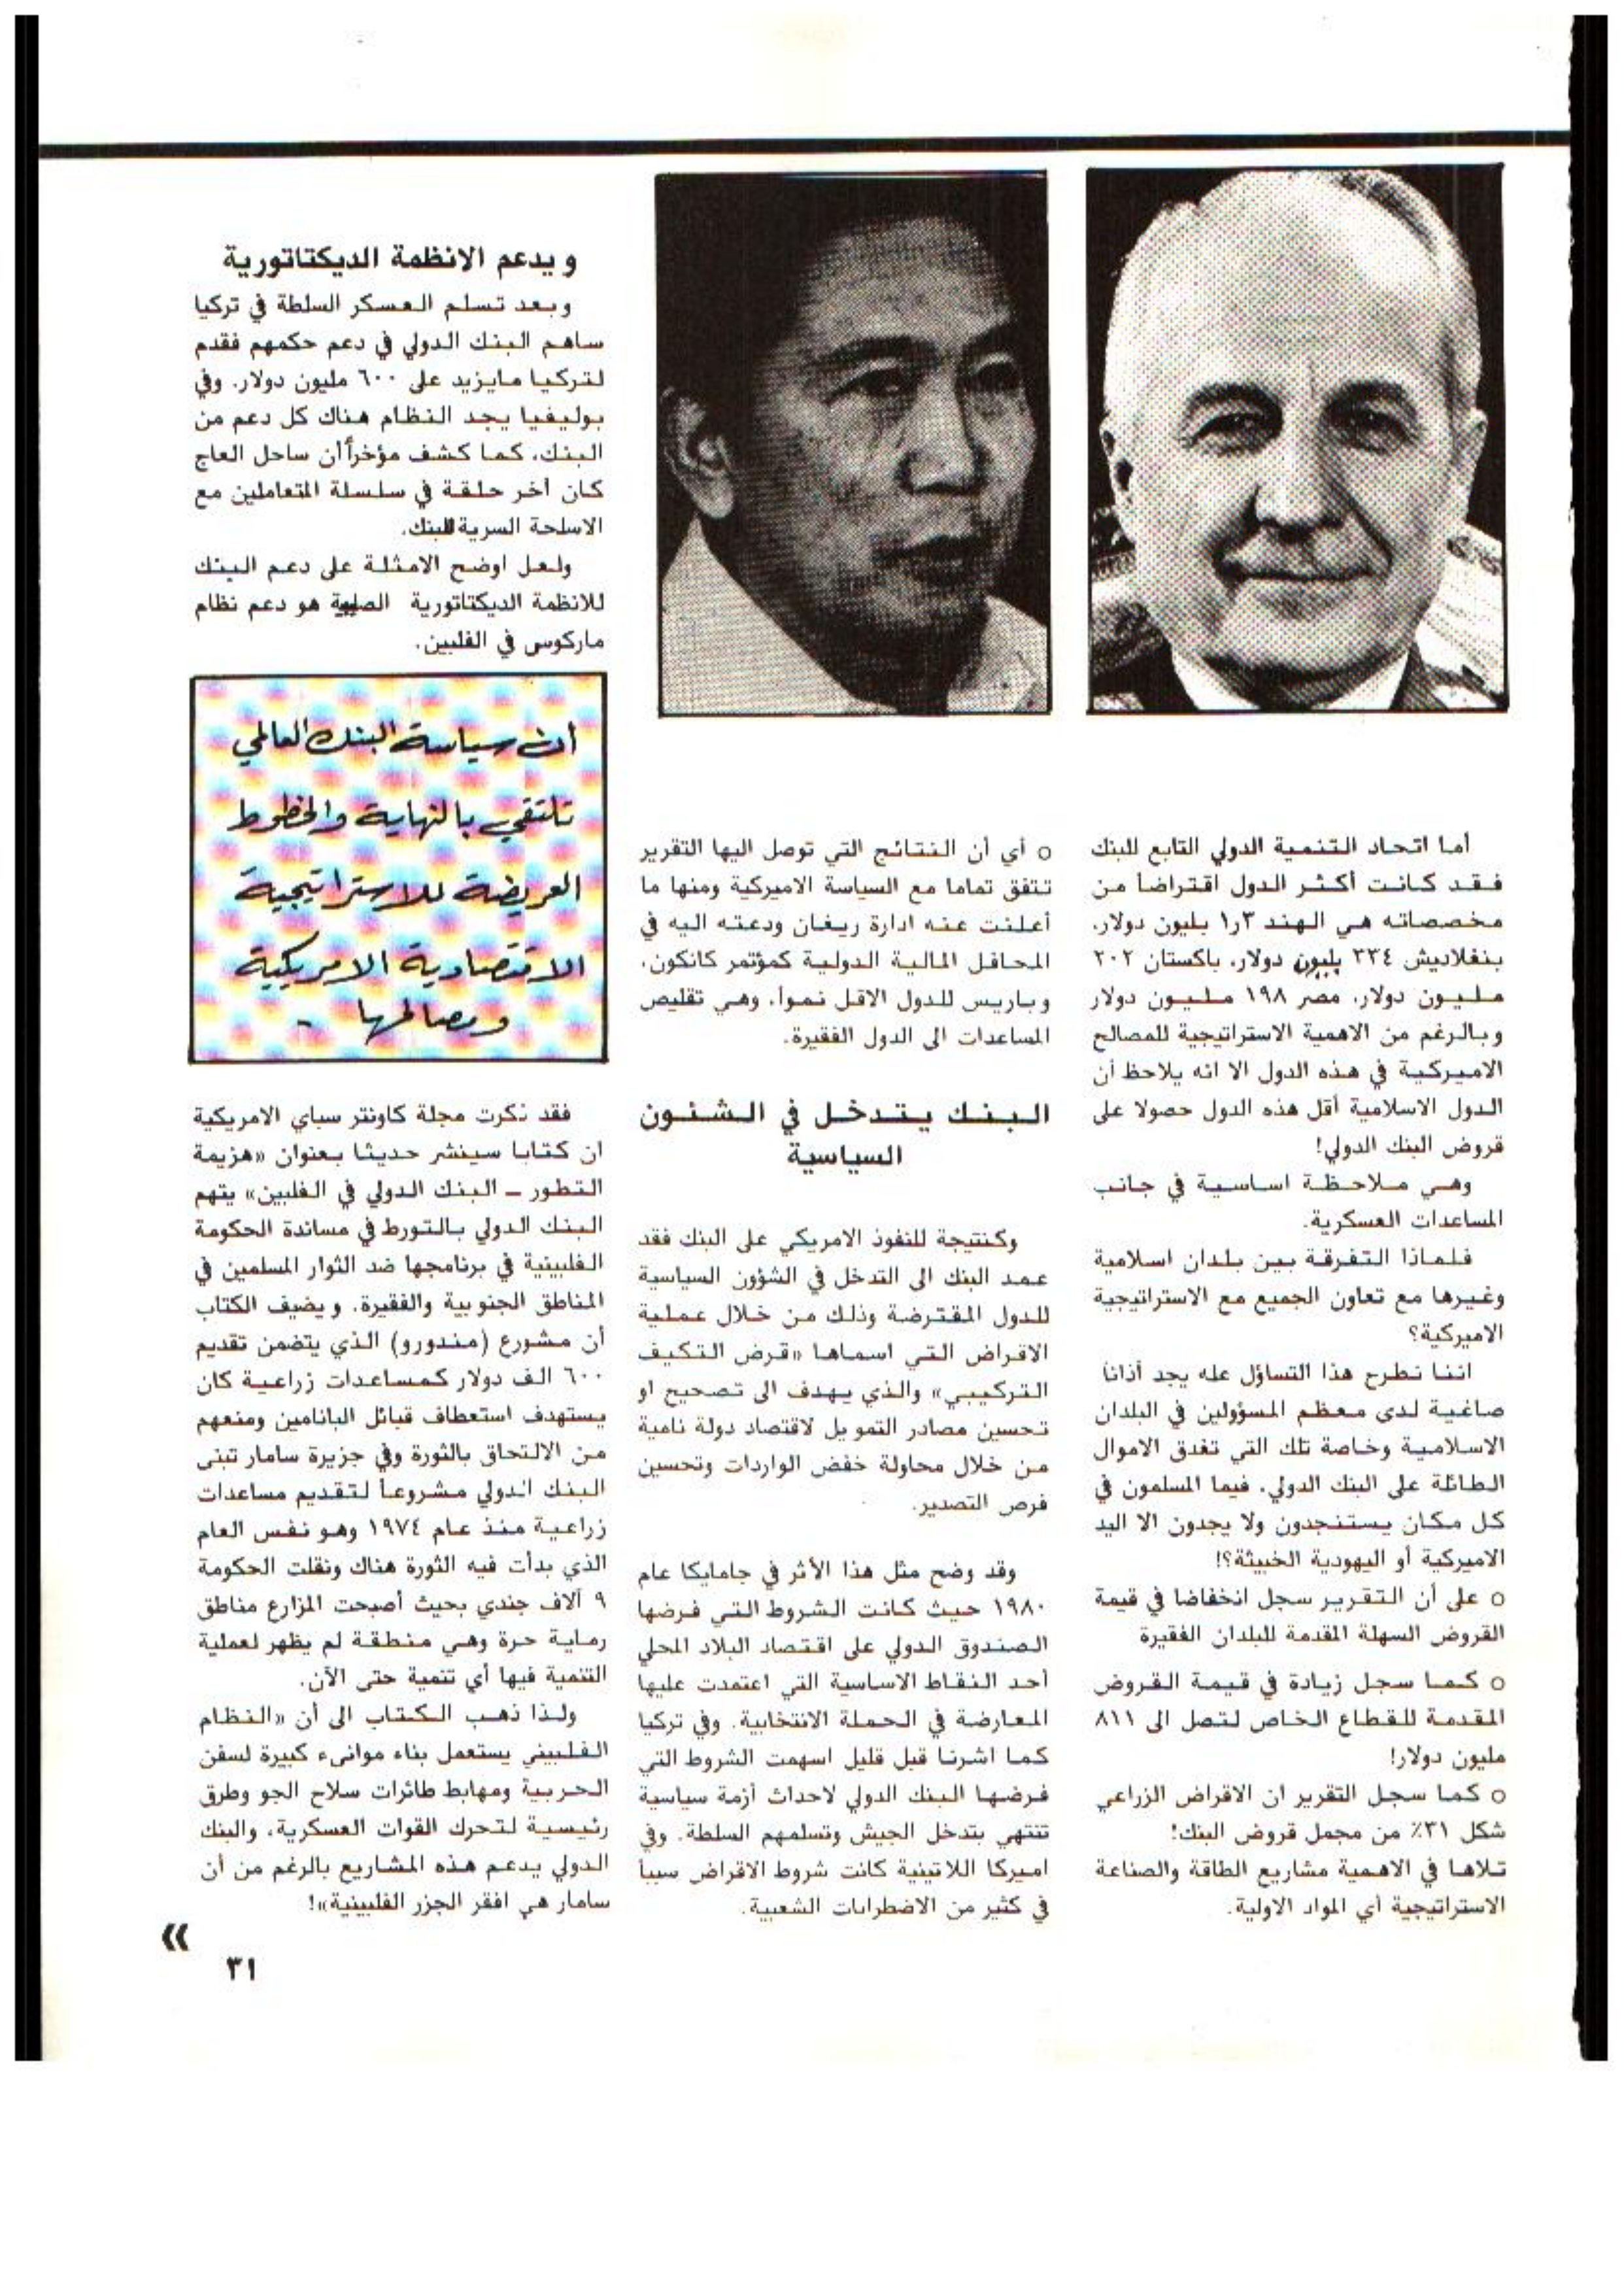 أما اتحاد التنمية الدولي التابع للبنك
فقد كانت أكثر الدول اقتراضاً من
مخصصاته هي الهند ١٫٣ بليون دولار،
بنغلاديش ٣٣٤ بليون دولار، باكستان ٢٠٢
مليون دولار، مصر ١٩٨ مليون دولار
وبالرغم من الاهمية الاستراتيجية للمصالح
الاميركية في هذه الدول الا انه يلاحظ أن
الدول الاسلامية أقل هذه الدول حصولا على
قروض البنك الدولي!
وهي ملاحظة اساسية في جانب
المساعدات العسكرية.
فلماذا التفرقة بين بلدان اسلامية
وغيرها مع تعاون الجميع مع الاستراتيجية
الاميركية؟
اننا نطرح هذا التساؤل عله يجد أذانا
صاغية لدى معظم المسؤولين في البلدان
الاسلامية وخاصة تلك التي تغدق الاموال
الطائلة على البنك الدولي، فيما المسلمون في
كل مكان يستنجدون ولا يجدون الا اليد
الاميركية أو اليهودية الخبيثة؟!
○ على أن التقرير سجل انخفاضا في قيمة
القروض السهلة المقدمة للبلدان الفقيرة
○ كما سجل زيادة في قيمة القروض
المقدمة للقطاع الخاص لتصل الى ٨١١
مليون دولار!
○ كما سجل التقرير ان الاقراض الزراعي
شكل ٣١٪ من مجمل قروض البنك!
تلاها في الاهمية مشاريع الطاقة والصناعة
الاستراتيجية أي المواد الاولية.
○ أي أن النتائج التي توصل اليها التقرير
تتفق تماما مع السياسة الاميركية ومنها ما
أعلنت عنه ادارة ريغان ودعته اليه في
المحافل المالية الدولية كمؤتمر كانكون،
وباريس للدول الاقل نموا، وهي تقليص
المساعدات الى الدول الفقيرة.
البنك يتدخل في الشئون
السياسية
وكنتيجة للنفوذ الامريكي على البنك فقد
عمد البنك الى التدخل في الشؤون السياسية
للدول المقترضة وذلك من خلال عملية
الاقراض التي اسماها «قرض التكيف
التركيبي» والذي يهدف الى تصحيح او
تحسين مصادر التمويل لاقتصاد دولة نامية
من خلال محاولة خفض الواردات وتحسين
فرص التصدير.
وقد وضح مثل هذا الأثر في جامايكا عام
١٩٨٠ حيث كانت الشروط التي فرضها
الصندوق الدولي على اقتصاد البلاد المحلي
أحد النقاط الاساسية التي اعتمدت عليها
المعارضة في الحملة الانتخابية. وفي تركيا
كما اشرنا قبل قليل اسهمت الشروط التي
فرضها البنك الدولي لاحداث أزمة سياسية
تنتهي بتدخل الجيش وتسلمهم السلطة. وفي
اميركا اللاتينية كانت شروط الاقراض سبباً
في كثير من الاضطرابات الشعبية.
ويدعم الانظمة الديكتاتورية
وبعد تسلم العسكر السلطة في تركيا
ساهم البنك الدولي في دعم حكمهم فقدم
لتركيا مايزيد على ٦٠٠ مليون دولار. وفي
بوليفيا يجد النظام هناك كل دعم من
البنك، كما كشف مؤخراً أن ساحل العاج
كان أخر حلقة في سلسلة المتعاملين مع
الاسلحة السرية للبنك.
ولعل اوضح الامثلة على دعم البنك
للانظمة الديكتاتورية هو دعم نظام
ماركوس في الفلبين.
أن سياسة البنك العالمي
تلتقي بالنهاية والخطوط
العريضة للاستراتيجية
الاقتصادية الامريكية
ومصالحها -
فقد ذكرت مجلة كاونتر سباي الامريكية
ان كتابا سينشر حديثا بعنوان «هزيمة
التطور – البنك الدولي في الفلبين» يتهم
البنك الدولي بالتورط في مساندة الحكومة
الفلبينية في برنامجها ضد الثوار المسلمين في
المناطق الجنوبية والفقيرة. ويضيف الكتاب
أن مشورع (مندورو) الذي يتضمن تقديم
٦٠٠ الف دولار كمساعدات زراعية كان
يستهدف استعطاف قبائل البانامين ومنعهم
من الالتحاق بالثورة وفي جزيرة سامار تبنى
البنك الدولي مشروعاً لتقديم مساعدات
زراعية منذ عام ١٩٧٤ وهو نفس العام
الذي بدأت فيه الثورة هناك ونقلت الحكومة
٩ آلاف جندي بحيث أصبحت المزارع مناطق
رماية حرة وهي منطقة لم يظهر لعملية
التنمية فيها أي تنمية حتى الآن.
ولذا ذهب الكتاب الى أن «النظام
الفلبيني يستعمل بناء موانىء كبيرة لسفن
الحربية ومهابط طائرات سلاح الجو وطرق
رئيسية لتحرك القوات العسكرية، والبنك
الدولي يدعم هذه المشاريع بالرغم من أن
سامار هي افقر الجزر الفلبينية»!
»
٣١